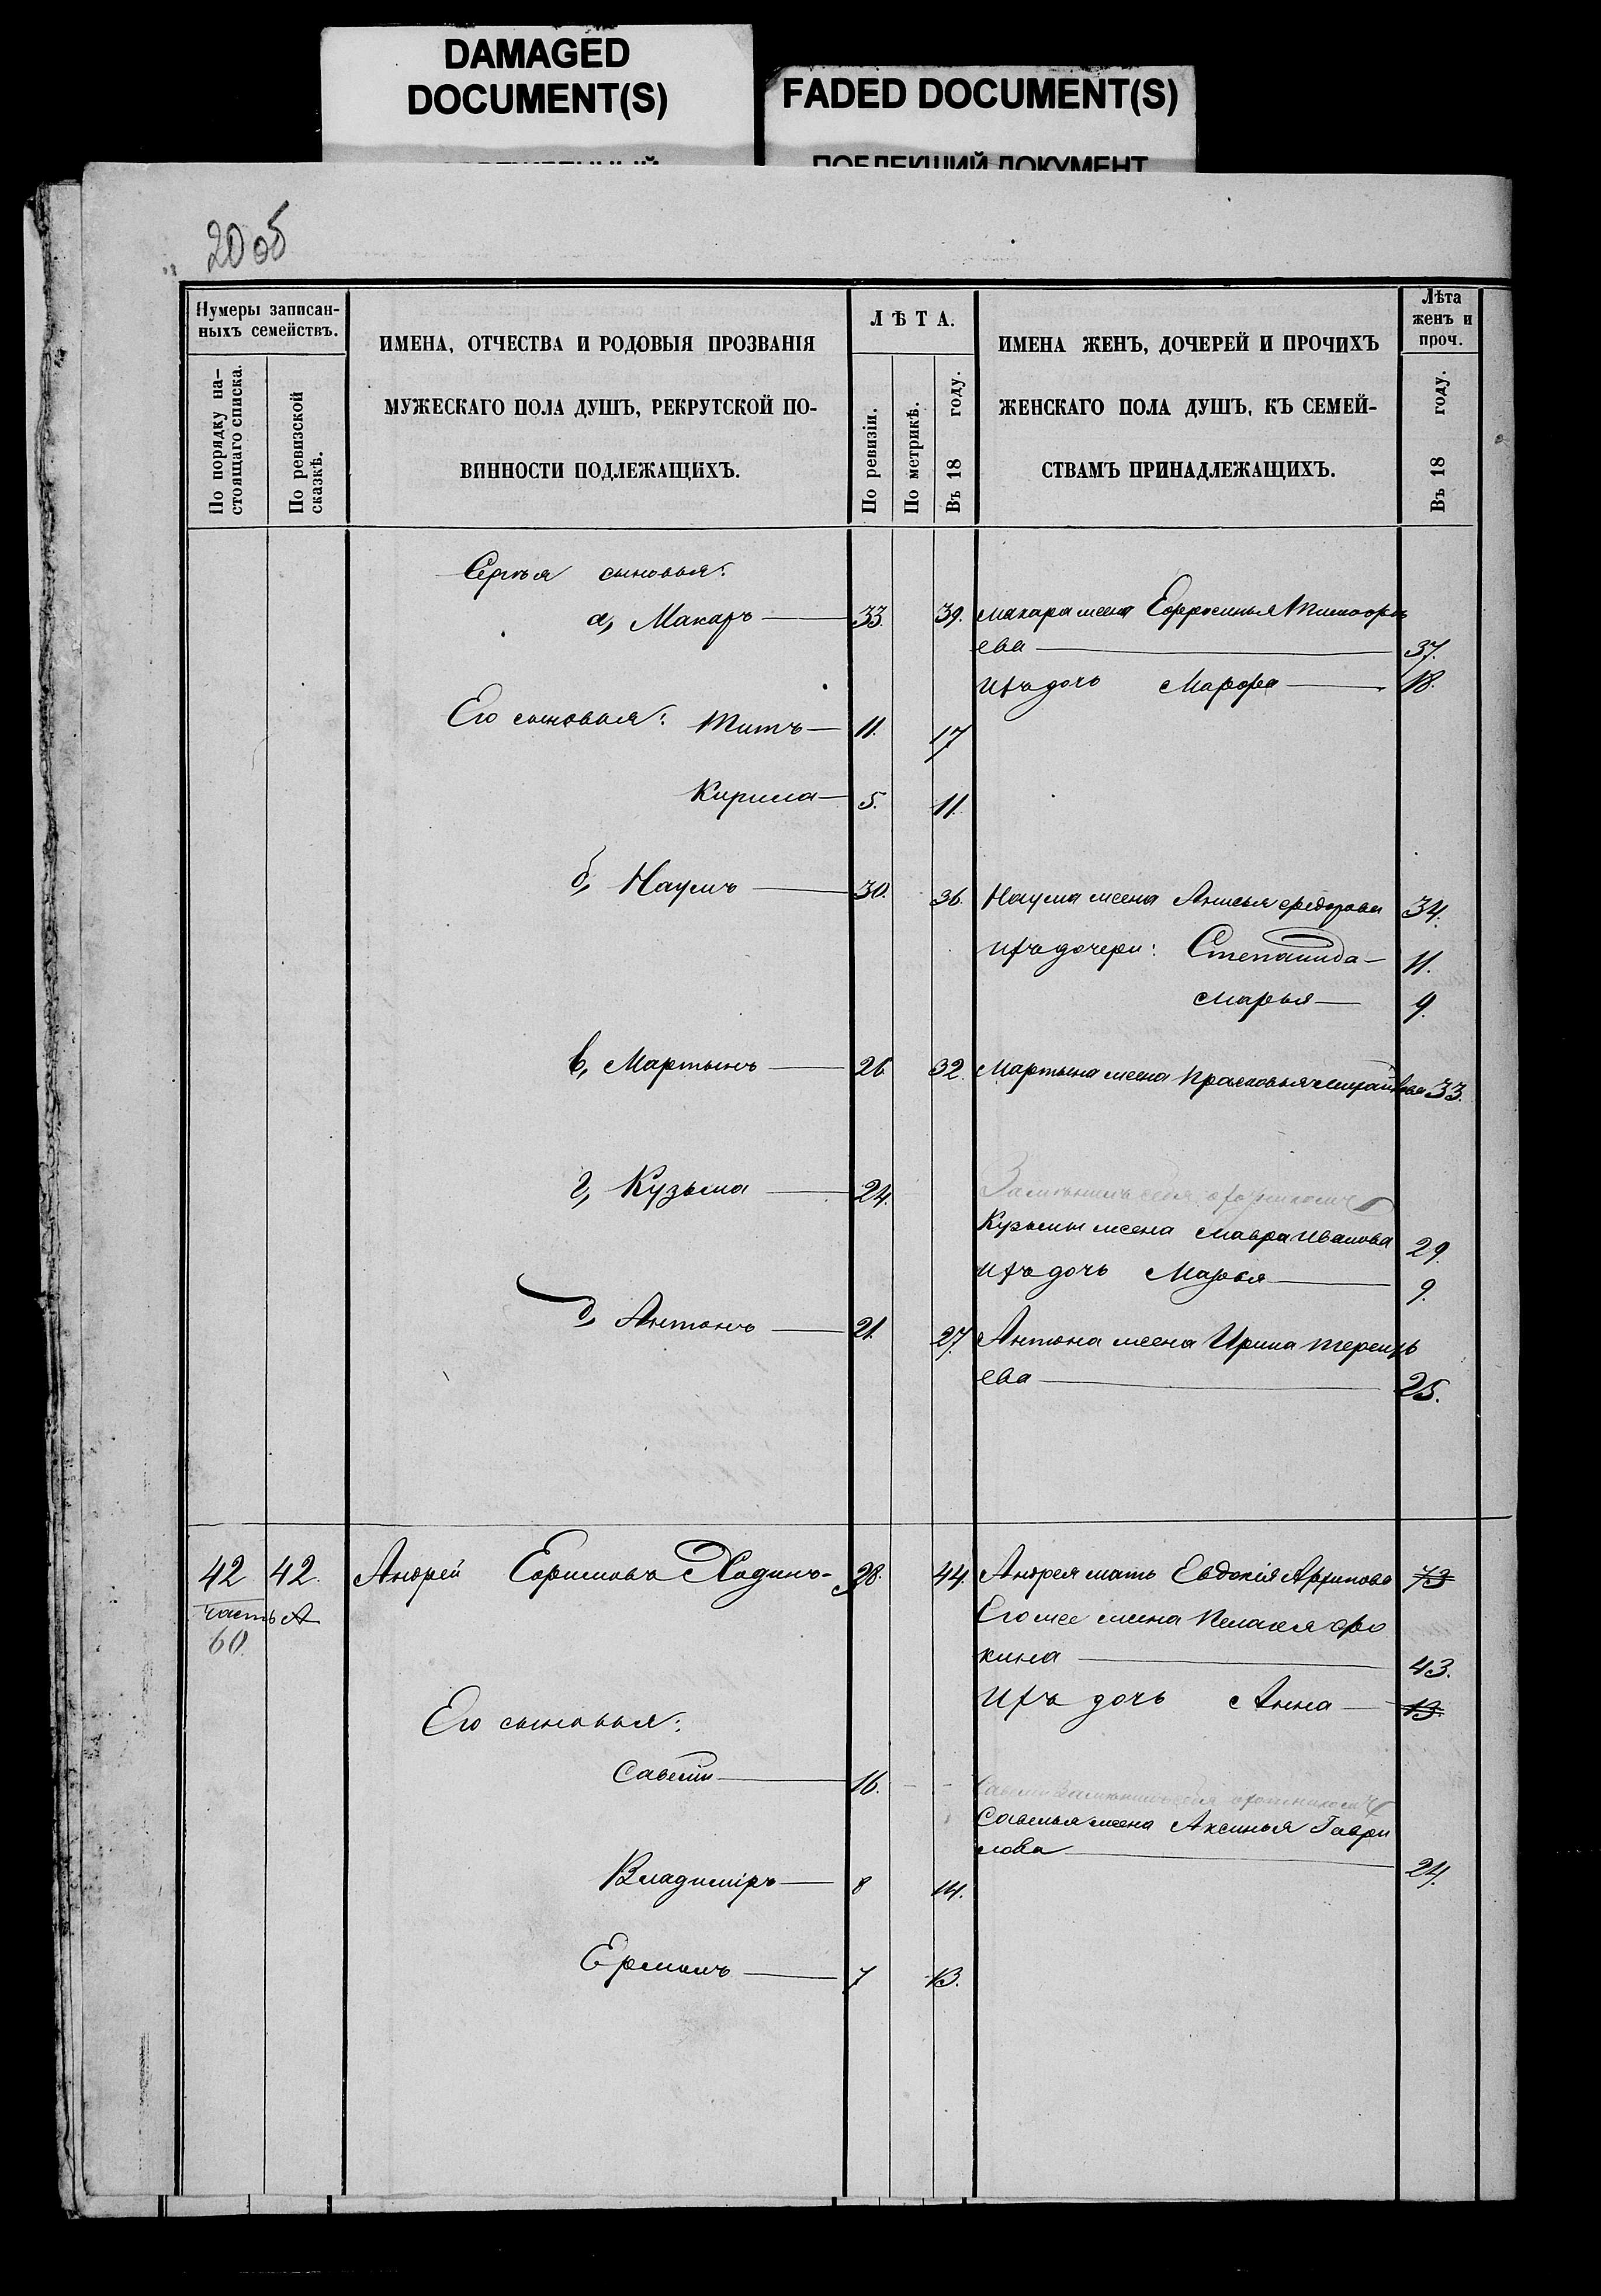 DAMAGED
DOCUMENT(S)
FADED DOCUMENT(S)
ПОБЛЕКШИЙ ДОКУМЕНТ
20об
Нумеры записан-
ныхъ семействъ.
По порядку на-
стоящаго списка.
По ревизской
сказкѣ.
ИМЕНА, ОТЧЕСТВА И РОДОВЫЯ ПРОЗВАНІЯ
МУЖЕСКАГО ПОЛА ДУШЪ, РЕКРУТСКОЙ ПО-
ВИННОСТИ ПОДЛЕЖАЩИХЪ.
ЛѢТА.
По ревизіи.
По метрикѣ.
Въ 18 году.
ИМЕНА ЖЕНЪ, ДОЧЕРЕЙ И ПРОЧИХЪ
ЖЕНСКАГО ПОЛА ДУШЪ, КЪ СЕМЕЙ-
СТВАМЪ ПРИНАДЛЕЖАЩИХЪ.
Лѣта
женъ и
проч.
Въ 18 году.
Сергѣя сыновья:
а, Макаръ 33. 39. Макара жена Ефросинья Тимофѣ
ева 37.
Ихъ дочь Марфа 18.
Его сыновья: Титъ 11. 17
Кирила 5. 11.
б, Наумъ 30. 36. Наума жена Анисья Федорова 34.
Ихъ дочери: Степанида 11.
Марья 9.
в, Мартынъ 26 32. Мартына жена Прасковья 33.
г, Кузьма 24.
Кузьмы жена Мавра Иванова 29.
Ихъ дочь Марья 9.
д, Антонъ 21. 27. Антона жена Ирина Терентъ
ева 25.
42 42. Андрей Ефимовъ 28. 44. Андрея мать Евдокія Архипова 73
часть А
60.
Его же жена Пелагея Фо
кина 43.
Ихъ дочь Анна 13.
Его сыновья:
Савелій 16.
Савелья жена Аксинья Гаври
лова 24.
Владиміръ 8 14.
Ермолъ 7 13.